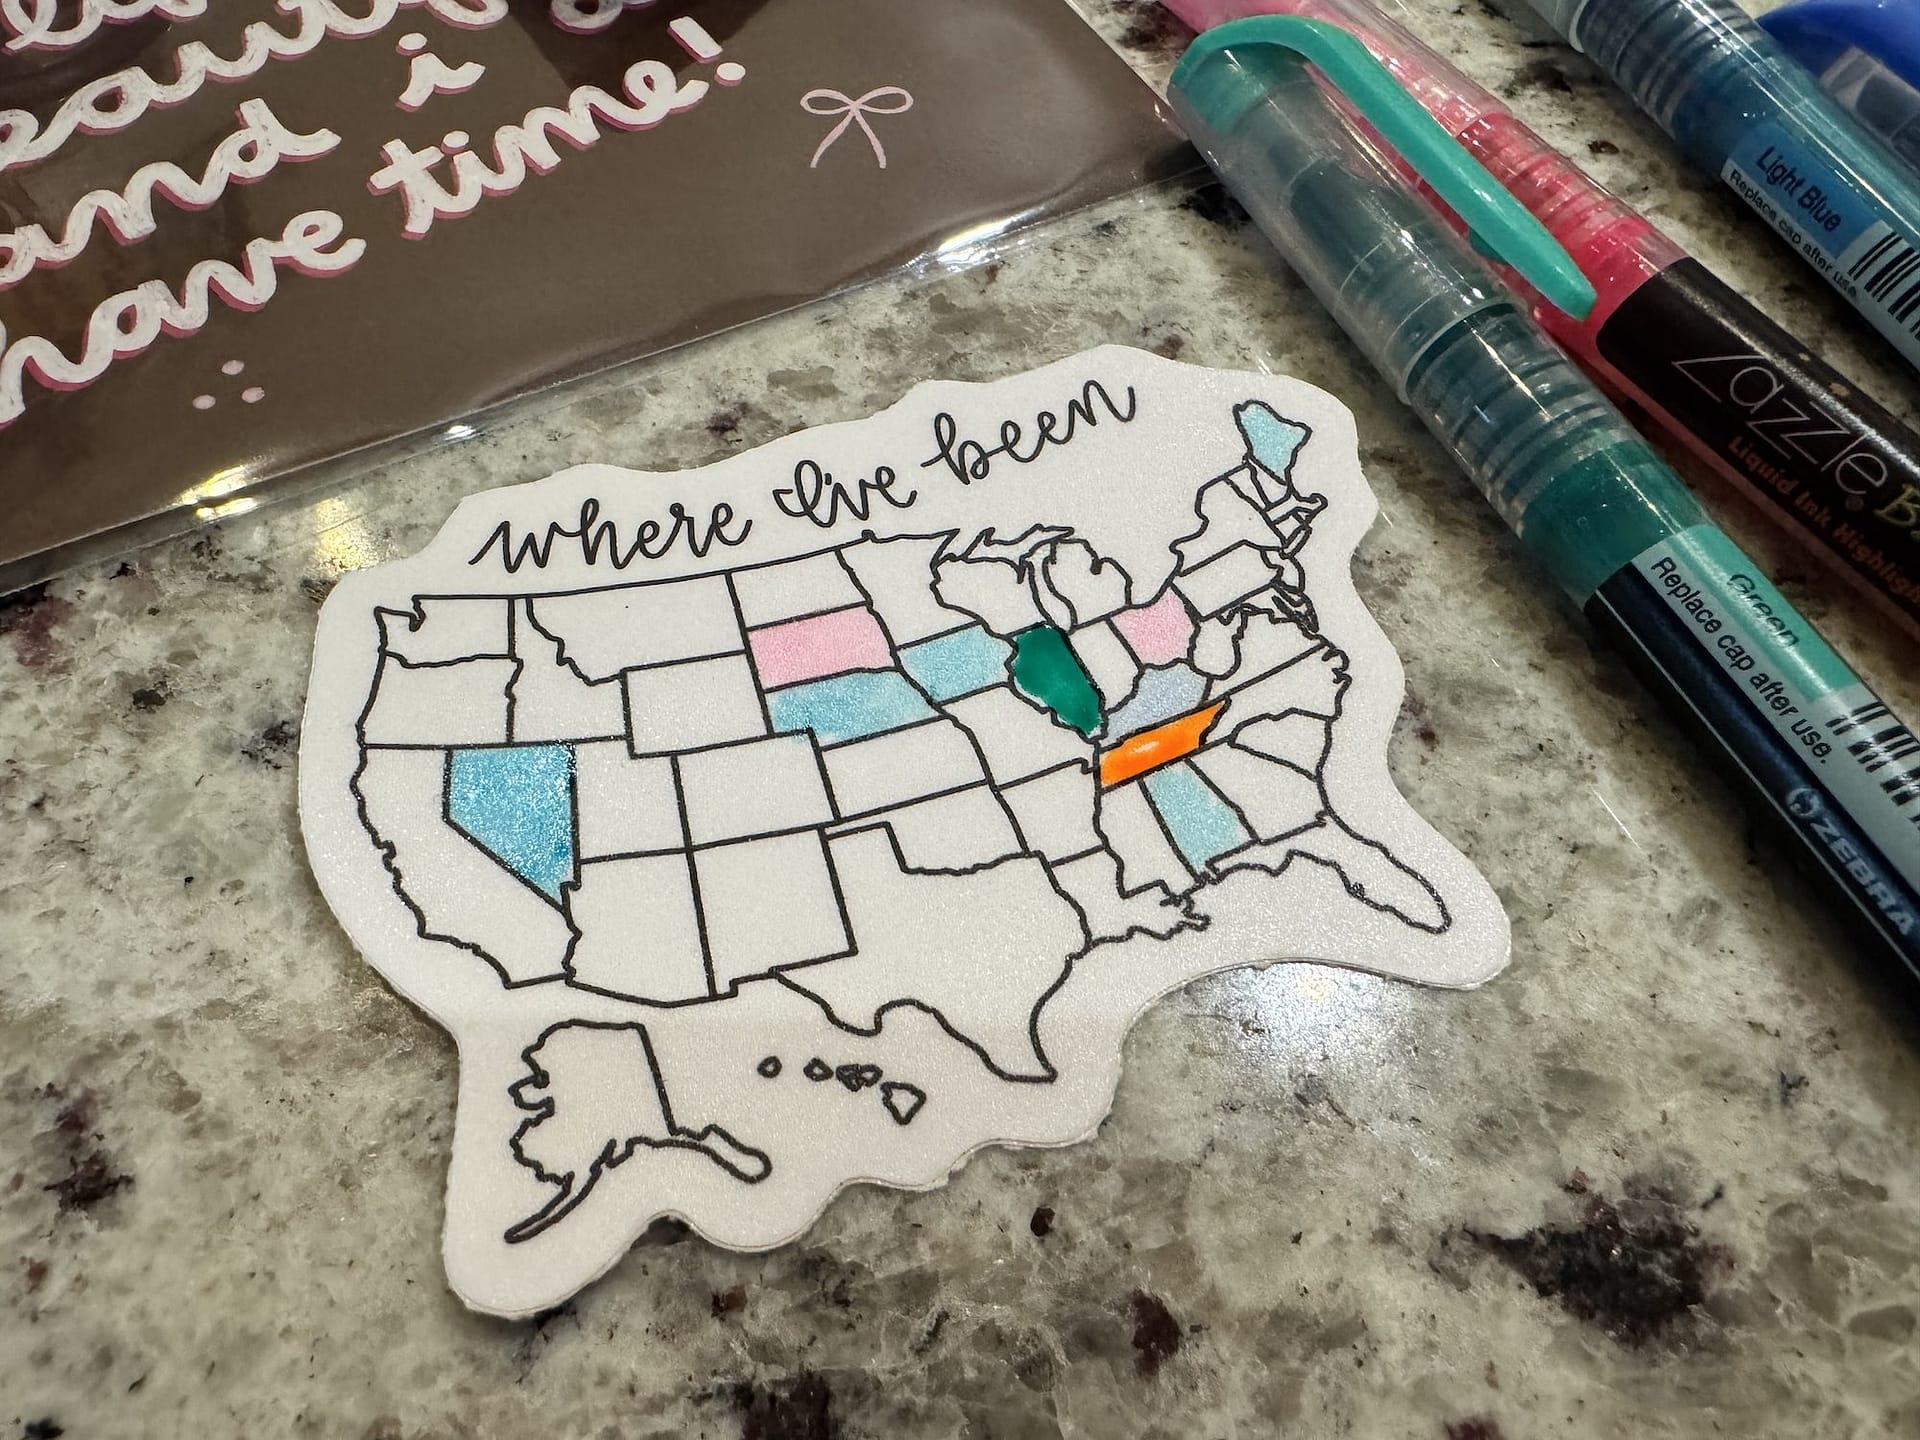 and i
have time!
where I've been
Light Blue
Replace cap after use.
Zazzle
Liquid Ink Highlight
Green
Replace cap after use.
ZEBRA